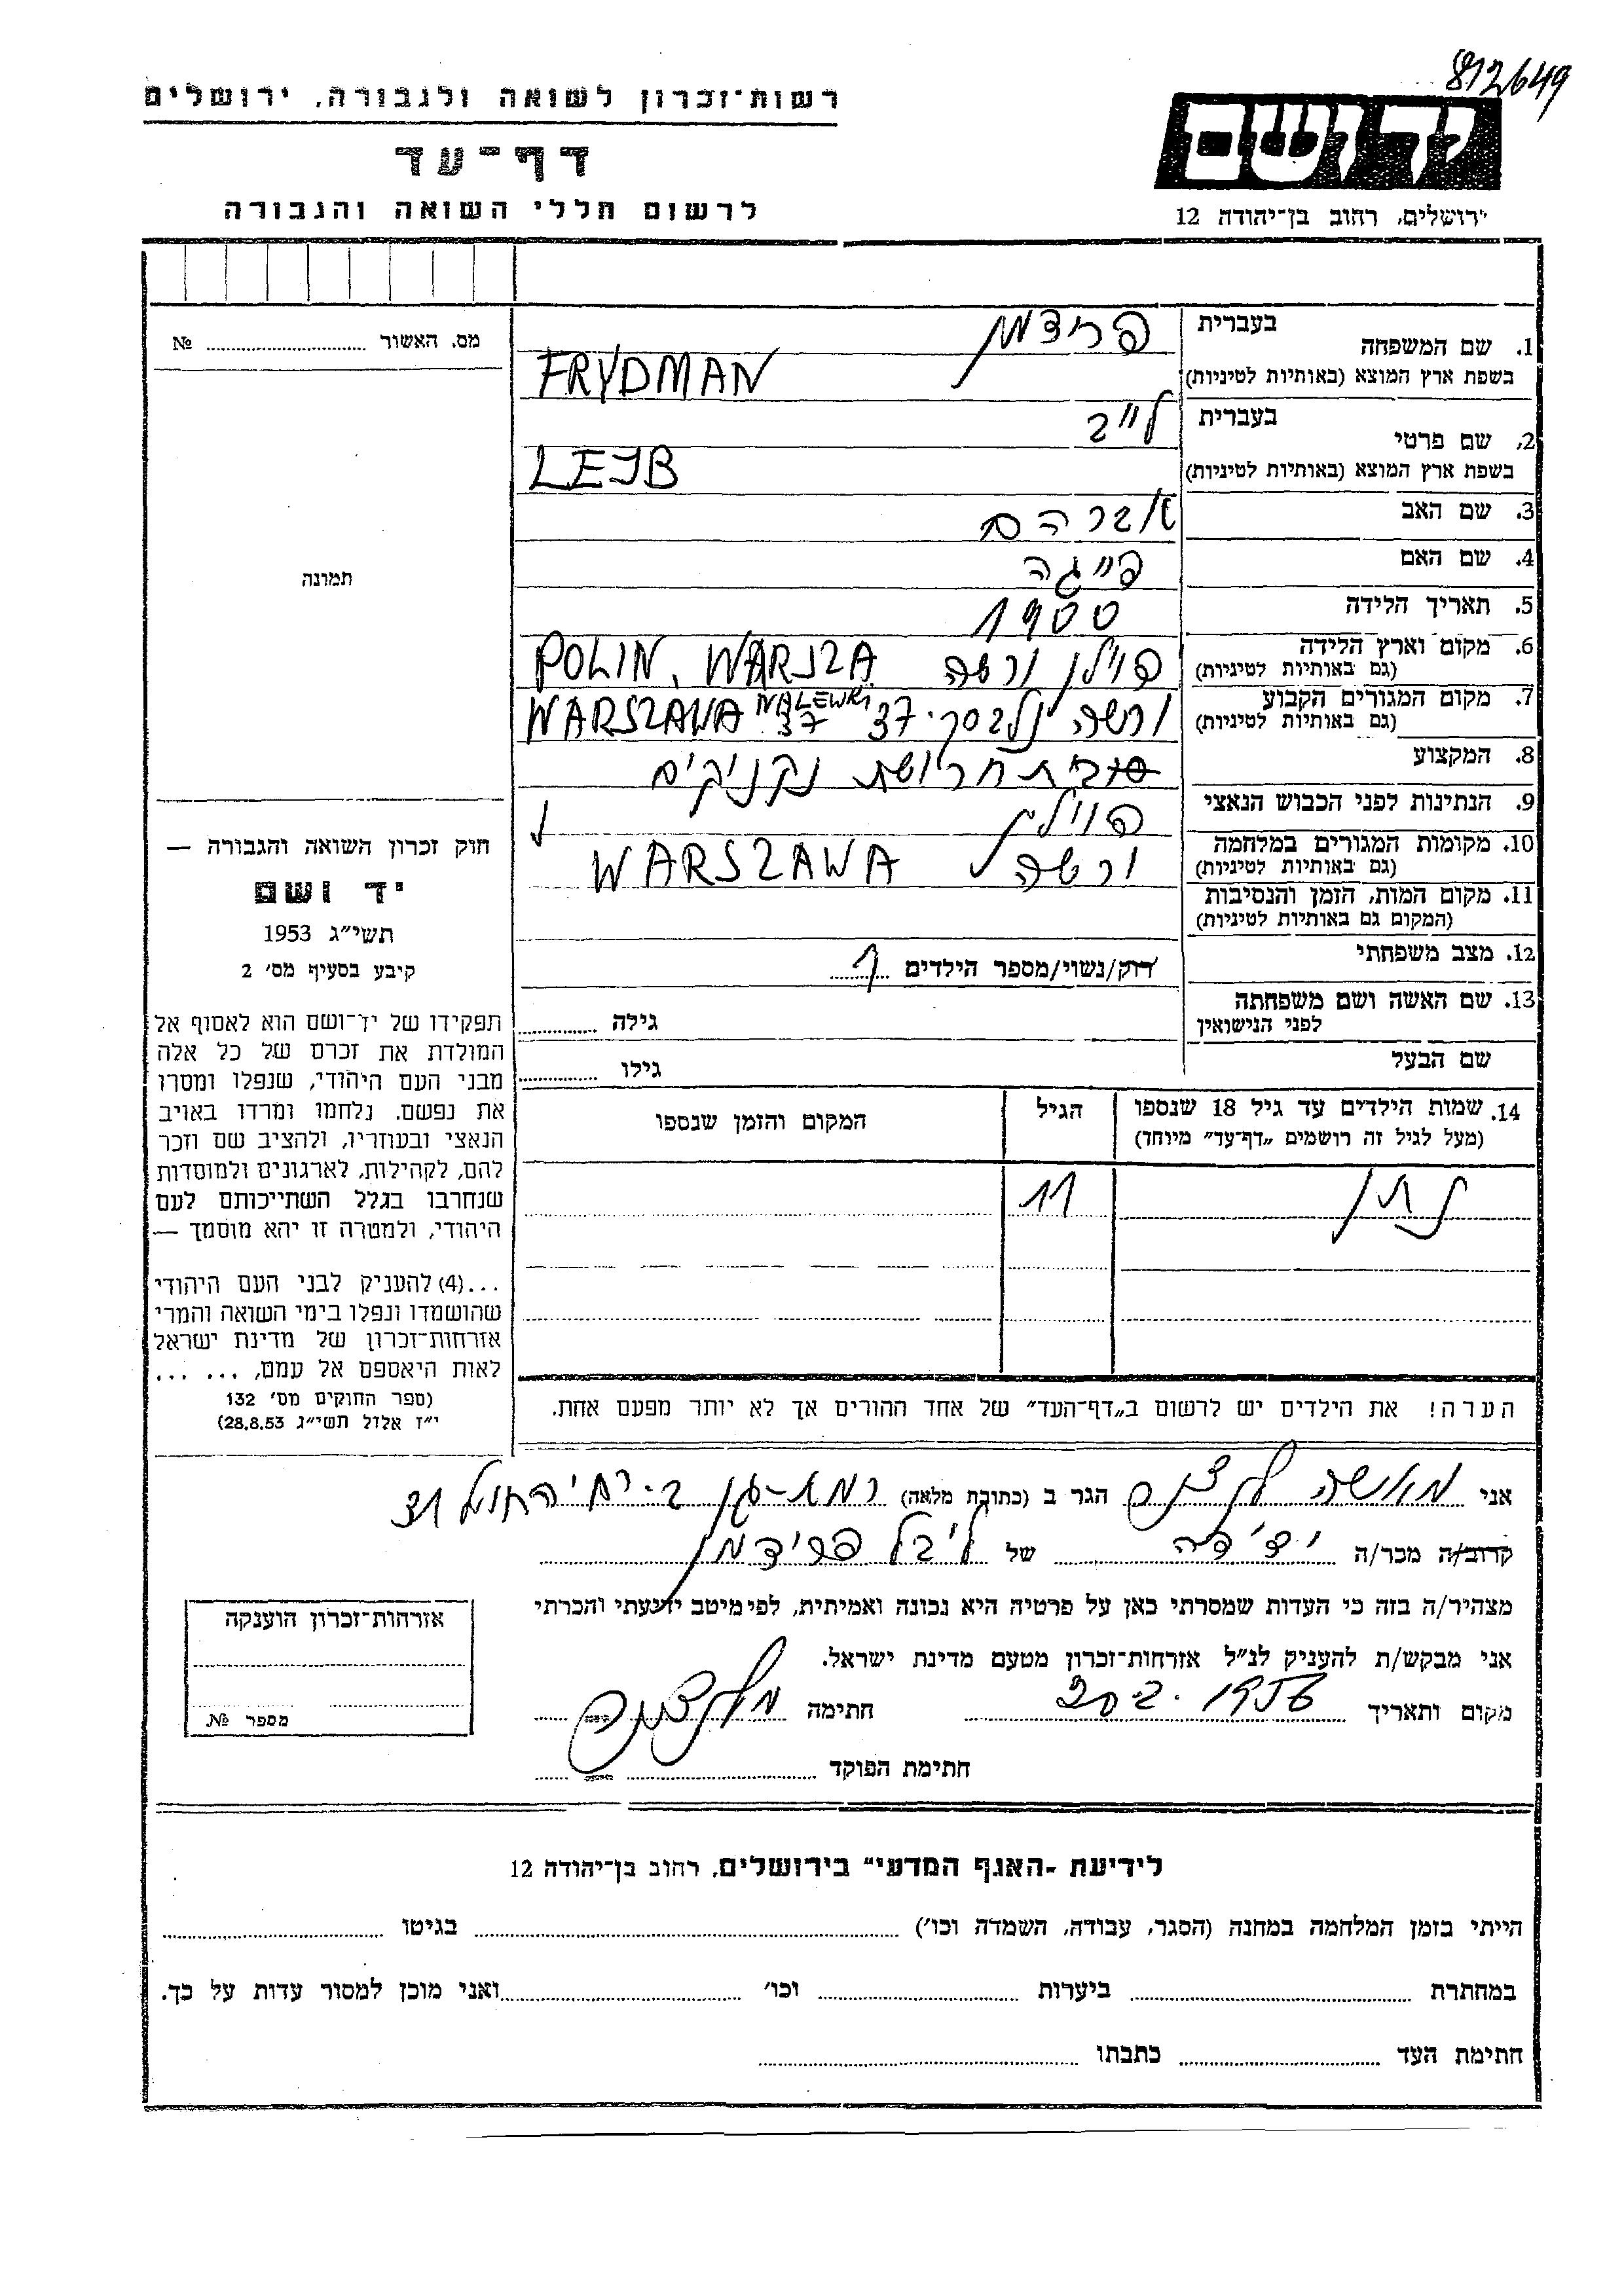 812649
רשות־זכרון לשואה ולגבורה, ירושלים
יד ושם
דף־עד
לרשום חללי השואה והגבורה
ירושלים, רחוב בן־יהודה 12
מס. האשור № 
1. שם המשפחה בעברית פרידמן
בשפת ארץ המוצא (באותיות לטיניות) FRYDMAN
2. שם פרטי בעברית לייב
בשפת ארץ המוצא (באותיות לטיניות) LEJB
3. שם האב אברהם
4. שם האם פייגה
5. תאריך הלידה 1900
6. מקום וארץ הלידה (גם באותיות לטיניות) פוילן ורשה POLIN, WARSZA
7. מקום המגורים הקבוע (גם באותיות לטיניות) ורשה 37 WARSZAWA NALEWKI 37
8. המקצוע בית חרושת נקניקים
9. הנתינות לפני הכבוש הנאצי
10. מקומות המגורים במלחמה (גם באותיות לטיניות) ורשה WARSZAWA
11. מקום המות, הזמן והנסיבות (המקום גם באותיות לטיניות)
12. מצב משפחתי רוק/נשוי/מספר הילדים 1
13. שם האשה ושם משפחתה לפני הנישואין גילה
שם הבעל גילו
14. שמות הילדים עד גיל 18 שנספו הגיל המקום והזמן שנספו
(מעל לגיל זה רושמים „דף־עד" מיוחד)
נתן 11
הערה! את הילדים יש לרשום ב„דף־העד" של אחד ההורים אך לא יותר מפעם אחת.
תמונה
חוק זכרון השואה והגבורה —
יד ושם
תשי״ג 1953
קיבע בסעיף מס׳ 2
תפקידו של יד־ושם הוא לאסוף אל
המולדת את זכרם של כל אלה
מבני העם היהודי, שנפלו ומסרו
את נפשם, נלחמו ומרדו באויב
הנאצי ובעוזריו, ולהציב שם וזכר
להם, לקהילות, לארגונים ולמוסדות
שנחרבו בגלל השתייכותם לעם
היהודי, ולמטרה זו יהא מוסמך —
...(4) להעניק לבני העם היהודי
שהושמדו ונפלו בימי השואה והמרי
אזרחות־זכרון של מדינת ישראל
לאות היאספם אל עמם, ... ...
(ספר החוקים מס׳ 132
י״ז אלול תשי״ג 28.8.53)
אני הגר ב (כתובת מלאה) רמת-גן
קרוב/ה מכר/ה ידידה של ליבל פרידמן
מצהיר/ה בזה כי העדות שמסרתי כאן על פרטיה היא נכונה ואמיתית, לפי מיטב ידיעתי והכרתי
אני מבקש/ת להעניק לנ״ל אזרחות־זכרון מטעם מדינת ישראל.
מקום ותאריך 1956 חתימה
חתימת הפוקד
אזרחות־זכרון הוענקה
מספר №
לידיעת -האגף המדעי" בירושלים, רחוב בן־יהודה 12
הייתי בזמן המלחמה במחנה (הסגר, עבודה, השמדה וכו׳) בגיטו
במחתרת ביערות וכו׳ ואני מוכן למסור עדות על כך.
חתימת העד כתבתו